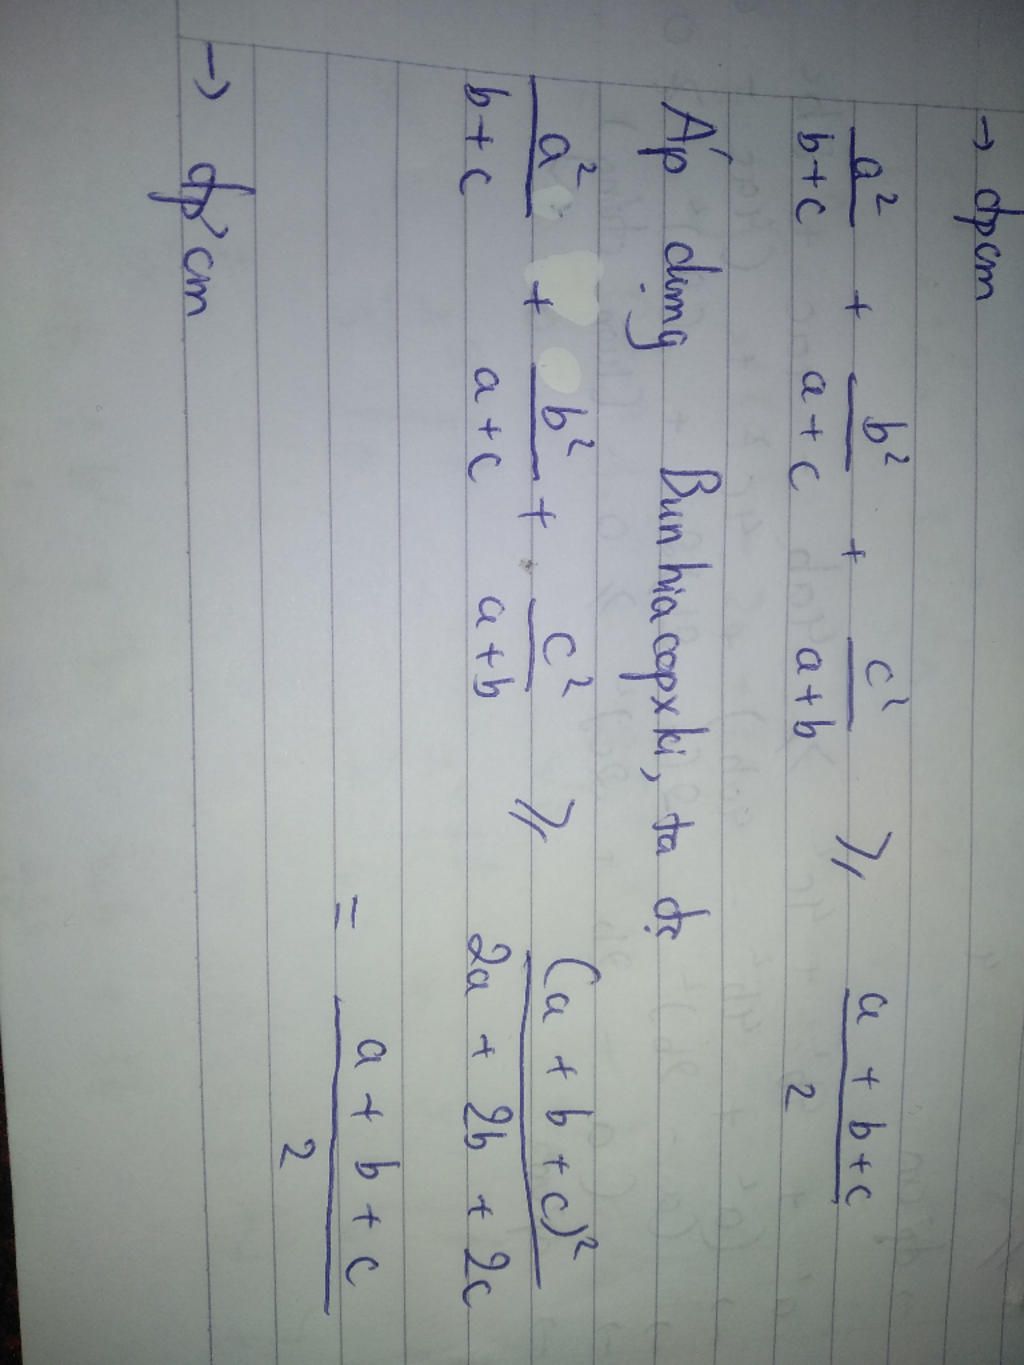 → đpcm
a²/b+c + b²/a+c + c²/a+b ⩾ a + b+c/2
Áp dụng Bunhiacopxki, ta đc
a²/b+c + b²/a+c + c²/a+b ⩾ (a + b + c)²/2a + 2b + 2c
= a + b + c/2
→ đpcm